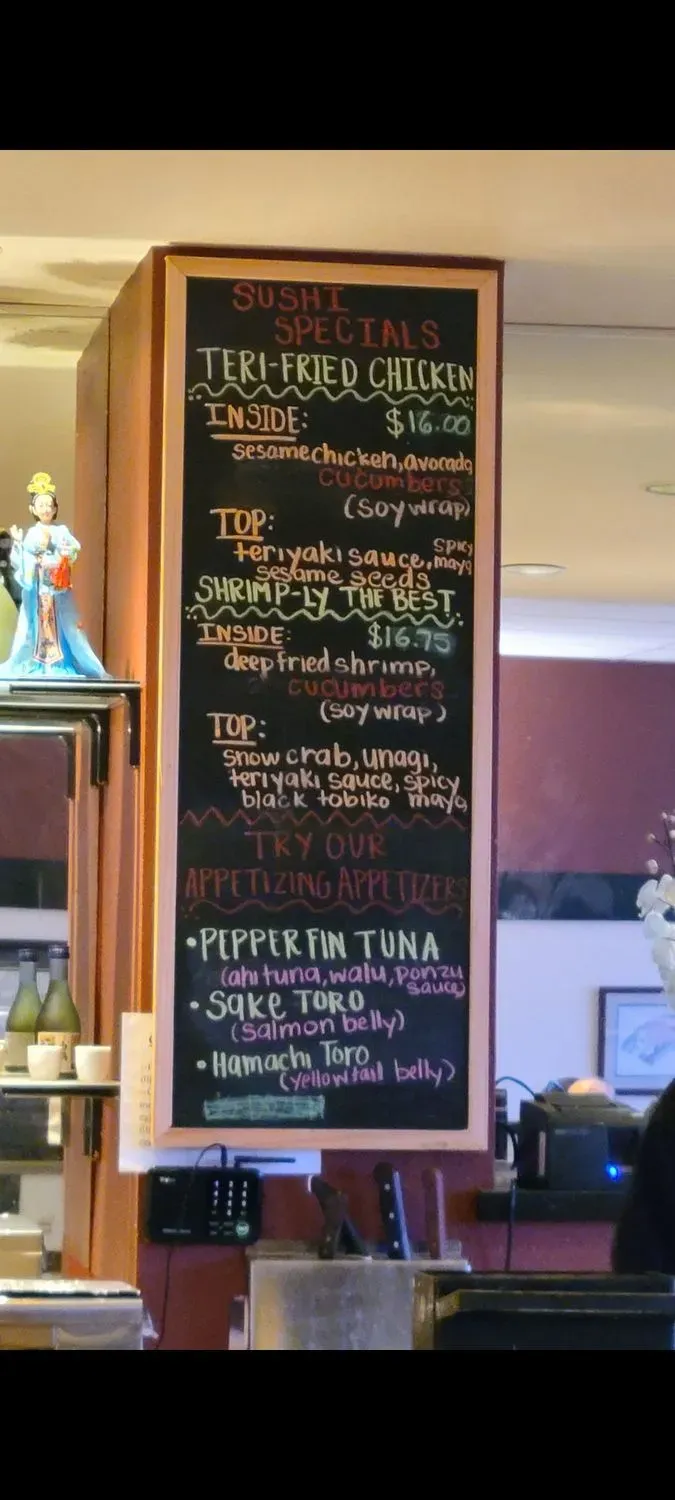 SUSHI
SPECIALS
TERI-FRIED CHICKEN
INSIDE: $16.00
sesame chicken, avocado
cucumbers
(soy wrap)
TOP:
teriyaki sauce, spicy mayo
sesame seeds
SHRIMP-LY THE BEST
INSIDE: $16.75
deep fried shrimp,
cucumbers
(soy wrap)
TOP:
snow crab, unagi,
teriyaki sauce, spicy mayo
black tobiko
TRY OUR
APPETIZING APPETIZERS
•PEPPER FIN TUNA
(ahi tuna, walu, ponzu sauce)
•Sake TORO
(salmon belly)
•Hamachi Toro
(yellowtail belly)